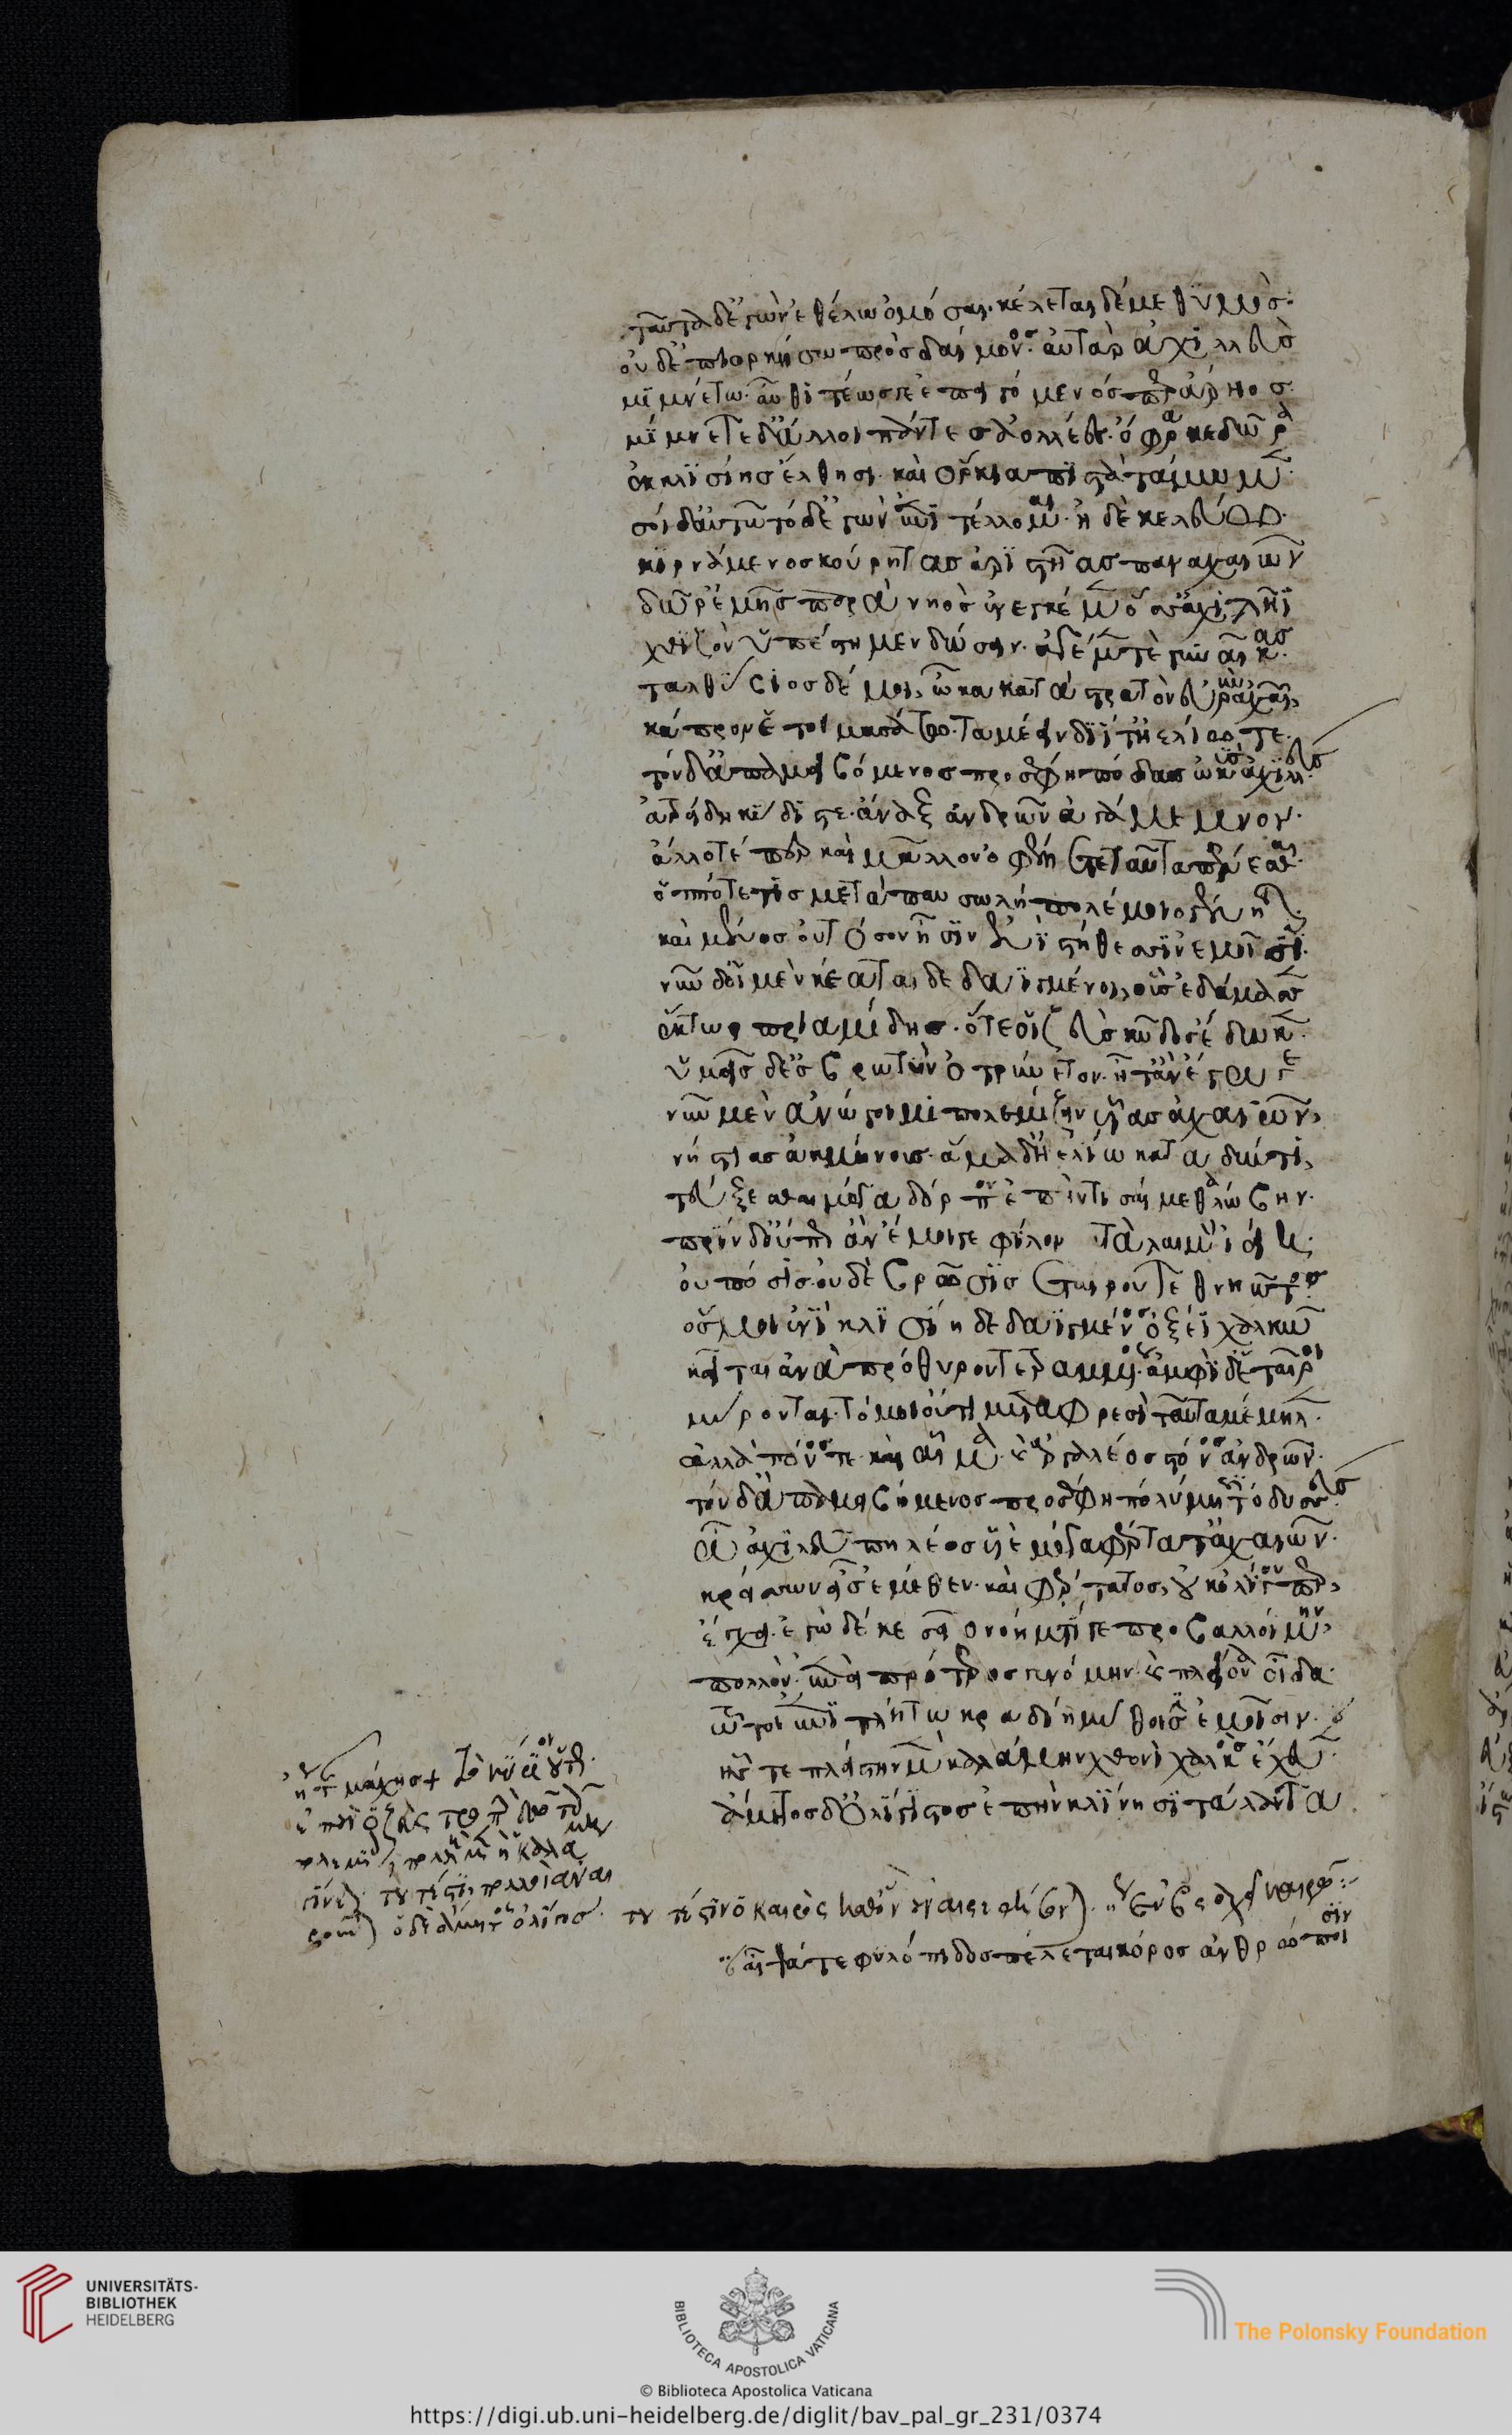 ταῦτα δ' ἐγὼν ἐθέλω ὀμόσαι· κέλεται δέ με θυμὸς·
οὐδ' ἐπιορκήσω πρὸς δαίμονος· αὐτὰρ ἀχιλλεὺς
μιμνέτω αὖθι τέως γε ἐπειγόμενός περ ἄρηος·
μίμνετε δ' ἄλλοι πάντες ἀολλέες· ὄφρα κε δῶρα
ἐκ κλισίης ἔλθησι· καὶ ὅρκια πιστὰ τάμωμεν·
σοὶ δ' αὐτῶ τόδ' ἐγὼν ἐπιτέλλομαι· ἠδὲ κελεύω·
κρινάμενος κούρητας ἀριστῆας παναχαιῶν
δῶρα ἐμῆς παρὰ νηὸς ἐνεγκέμεν ὅσσ' ἀχιλῆϊ
χθιζὸν ὑπέστημεν δώσειν· ἀγέμεν τὲ γυναῖκας·
ταλθύβιος δέ μοι, ὦκα κατὰ στρατὸν εὐρὺν ἀχαιῶν,
κάπρον ἑτοιμασάτω· ταμέειν διῒ τ' ἠελίω τε·
τὸν δ' ἀπαμειβόμενος προσέφη πόδας ὠκὺς ἀχιλλεύς·
ἀτρείδη κύδιστε· ἄναξ ἀνδρῶν ἀγάμεμνον·
ἄλλοτέ περ καὶ μᾶλλον ὀφέλλετε ταῦτα πένεσθαι·
ὁππότε τις μεταπαυσωλὴ πολέμοιο γένηται·
καὶ μένος οὐ τόσον ἦσιν ἐνὶ στήθεσιν ἐμοῖσιν·
νῦν δ' οἱ μὲν κέαται δεδαϊγμένοι, οὓς ἐδάμασσεν
ἕκτωρ πριαμίδης· ὅτε οἱ ζεὺς κῦδος ἔδωκεν·
ὑμεῖς δ' ἐς βρωτὺν ὀτρύνετον· ἦ τ' ἂν ἔγωγε
νῦν μὲν ἀνώγοιμι πολεμίζειν υἷας ἀχαιῶν,
νήστιας ἀκμήνους· ἅμα δ' ἠελίω καταδύντι,
τεύξεσθαι μέγα δόρπον ἐπὴν τισαίμεθα λώβην·
πρὶν δ' οὔπως ἂν ἔμοιγε φίλον κατὰ λαιμὸν ἰείη·
οὐ πόσις οὐδὲ βρῶσις ἑταίρου τεθνηῶτος
ὅς μοι ἐνὶ κλισίη δεδαϊγμένος ὀξέϊ χαλκῶ
κεῖται ἀνὰ πρόθυρον τετραμμένος· ἀμφὶ δ' ἑταῖροι
μύρονται· τό μοι οὔτι μετὰ φρεσὶ ταῦτα μέμηλεν·
ἀλλὰ φόνος τε καὶ αἷμα· καὶ ἀργαλέος στόνος ἀνδρῶν·
τὸν δ' ἀπαμειβόμενος προσέφη πολύμητις ὀδυσσεύς·
ὦ ἀχιλεῦ πηλέος υἱὲ μέγα φέρτατ' ἀχαιῶν·
κρείσσων εἶς ἐμέθεν· καὶ φέρτατος, οὐκ ὀλίγον περ,
ἔγχει· ἐγὼ δέ κε σεῖο νοήματί γε προβαλλοίμην,
πολλόν· ἐπεὶ πρότερος γενόμην· καὶ πλείονα οἶδα·
τῶ τοι ἐπιτλήτω κραδίη μύθοισιν ἐμοῖσιν·
ἧς τε πλείστην μὲν καλάμην χθονὶ χαλκὸς ἔχευεν·
ἄμητος δ' ὀλίγιστος ἐπὴν κλίνησι τάλαντα
αἶψά τε φυλόπιδος πέλεται κόρος ἀνθρώποισιν
UNIVERSITÄTS-
BIBLIOTHEK
HEIDELBERG
BIBLIOTECA APOSTOLICA VATICANA
The Polonsky Foundation
© Biblioteca Apostolica Vaticana
https://digi.ub.uni-heidelberg.de/diglit/bav_pal_gr_231/0374